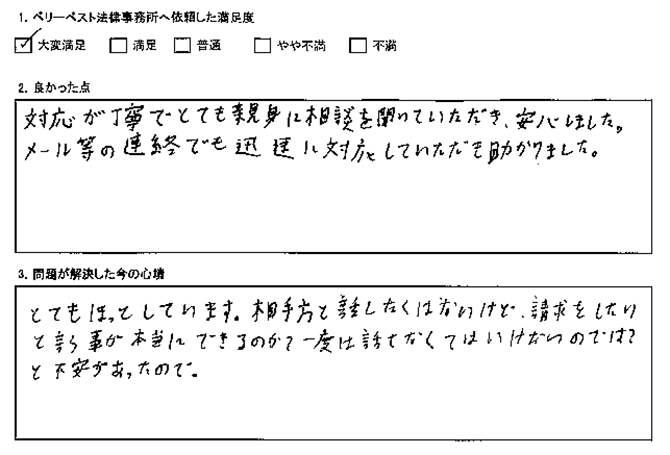 1. ベリーベスト法律事務所へ依頼した満足度
☑ 大変満足 □ 満足 □ 普通 □ やや不満 □ 不満
2. 良かった点
対応が丁寧でとても親身に相談を聞いていただき、安心しました。
メール等の連絡でも迅速に対応していただき助かりました。
3. 問題が解決した今の心境
とてもほっとしています。相手方と話したくはないけど、請求をしたい
と言う事が本当にできるのか？一度は話せなくてはいけないのでは？
と不安があったので。